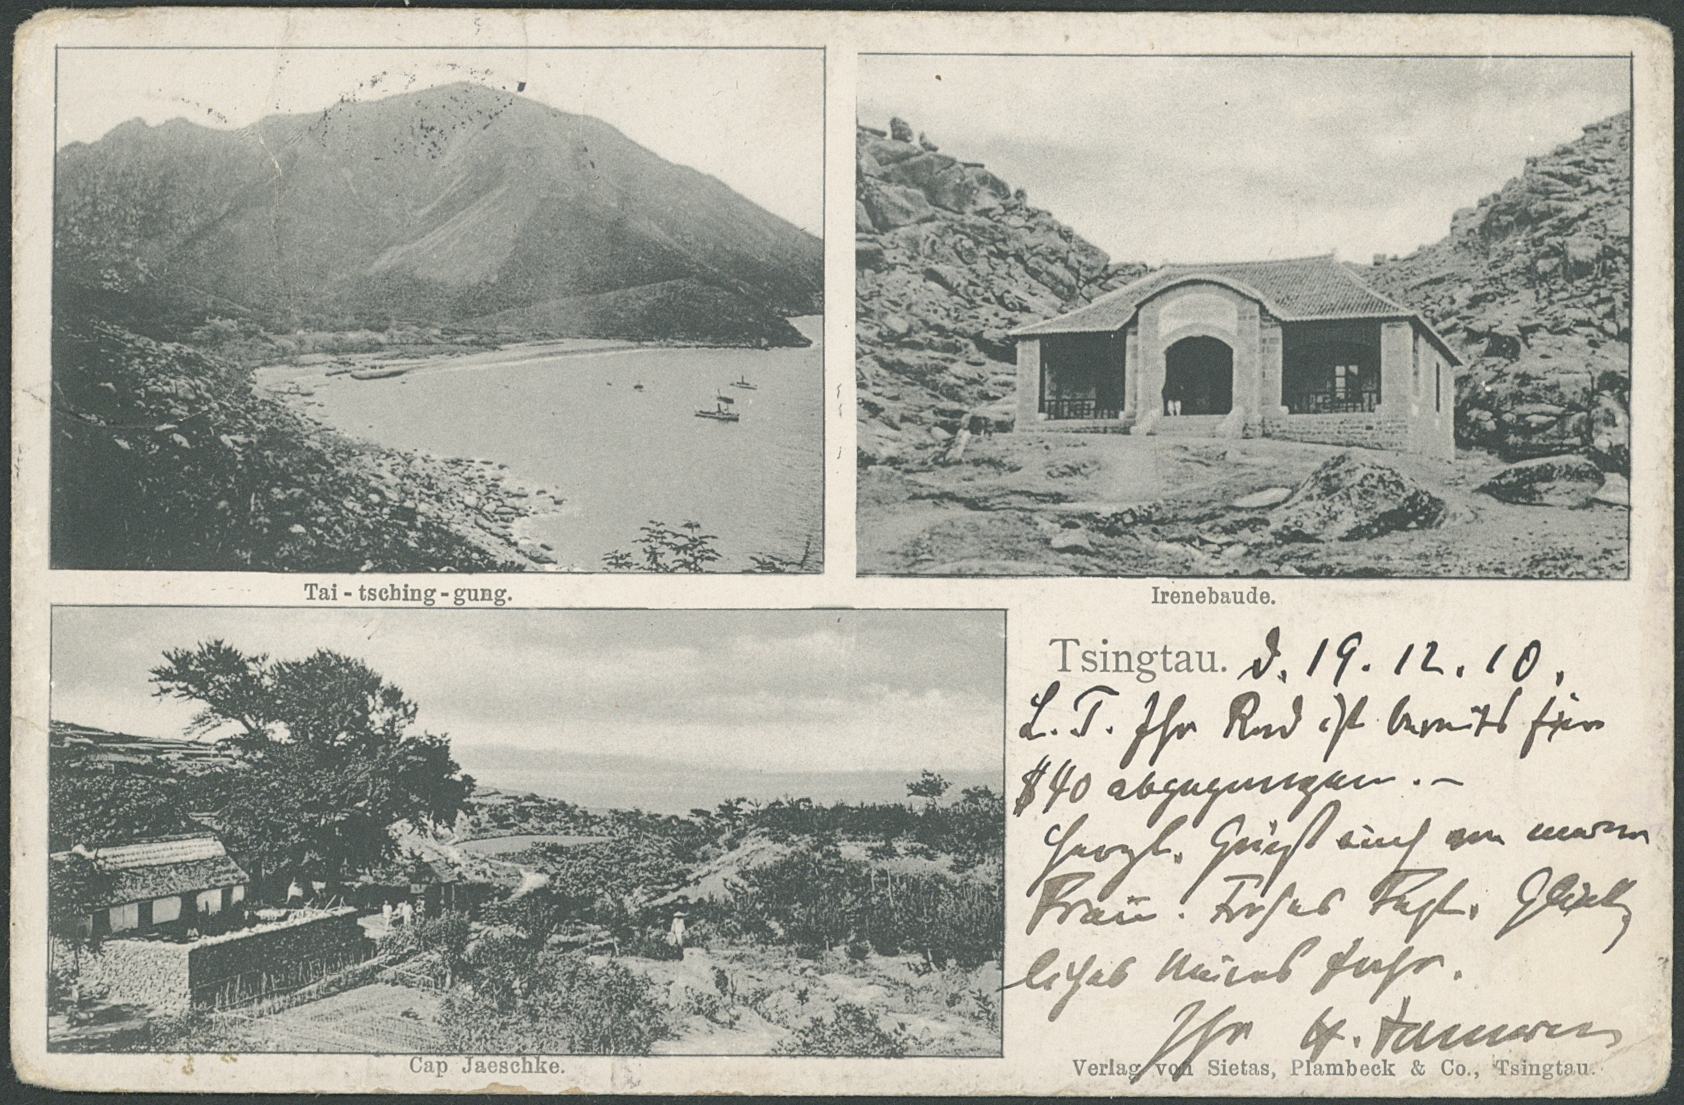 Tai-tsching-gung.
Irenebaude.
Cap Jaeschke.
Tsingtau. d. 19.12.10.
L. T. Ihr Rad ist bereits für
$40 abgegangen. –
Herzl. Gruß auch von meiner
Frau. Frohes Fest. Glück
liches Neues Jahr.
Ihr H.
Verlag von Sietas, Plambeck & Co., Tsingtau.